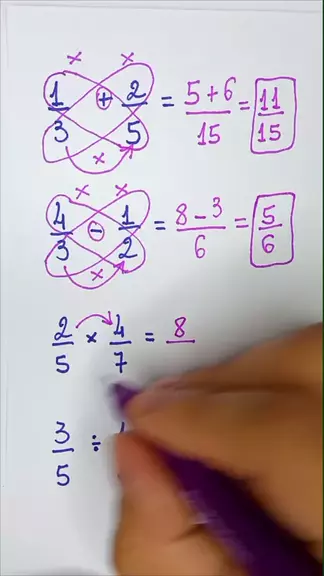 1/3 + 2/5 = 5+6/15 = 11/15
4/3 - 1/2 = 8-3/6 = 5/6
2/5 × 4/7 = 8/
3/5 ÷